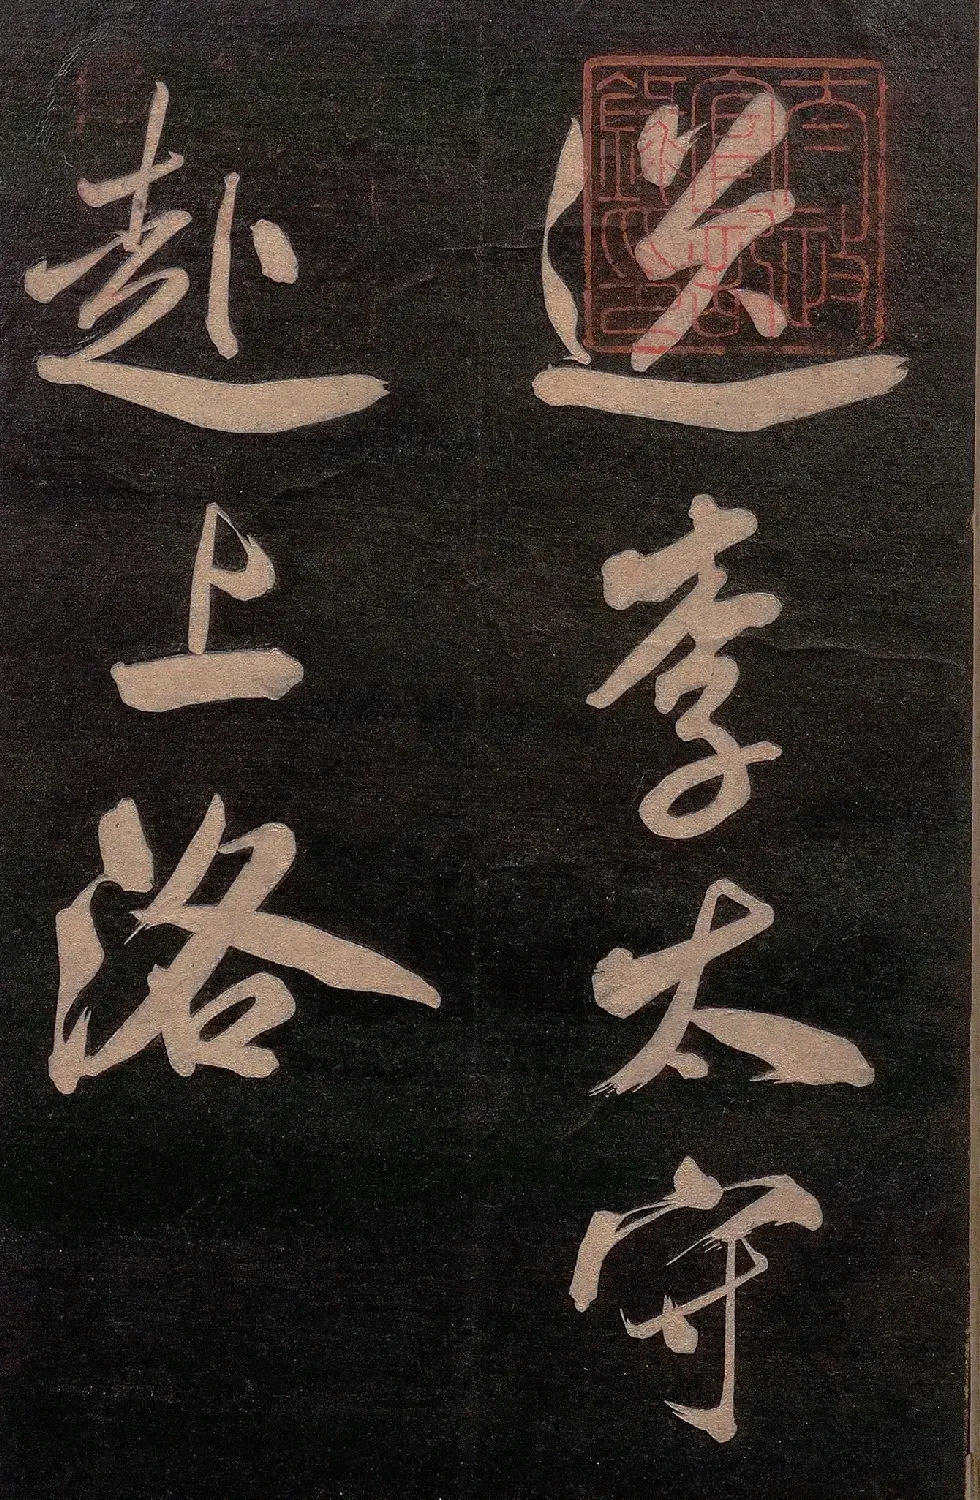 送李太守
赴上洛